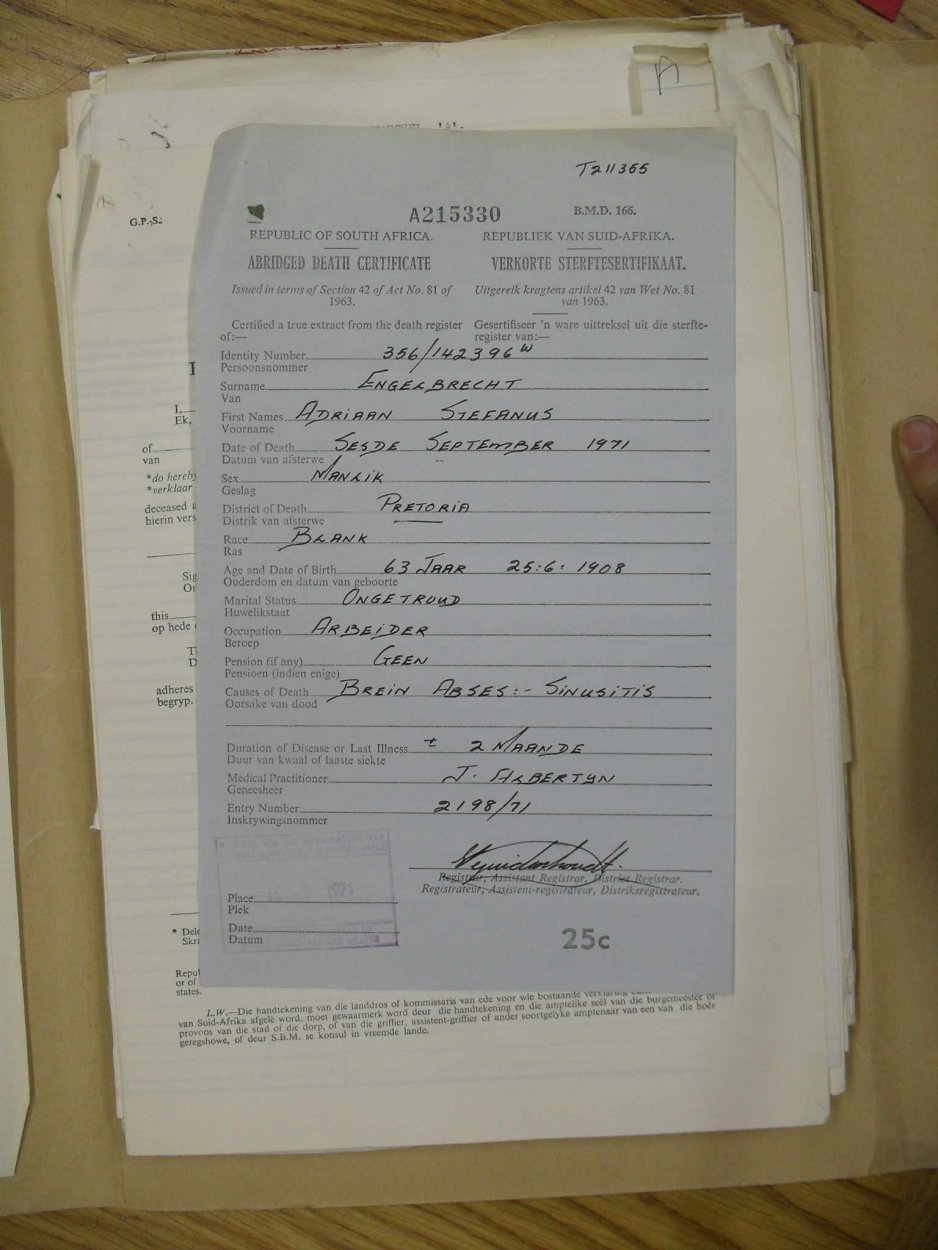 T211355
A215330 B.M.D. 166.
G.P.-S.
REPUBLIC OF SOUTH AFRICA. REPUBLIEK VAN SUID-AFRIKA.
ABRIDGED DEATH CERTIFICATE VERKORTE STERFTESERTIFIKAAT.
Issued in terms of Section 42 of Act No. 81 of Uitgereik kragtens artikel 42 van Wet No. 81
1963. van 1963.
Certified a true extract from the death register Gesertifiseer 'n ware uittreksel uit die sterfte-
of:— register van:—
Identity Number 356/142396 W
Persoonsnommer
Surname ENGELBRECHT
Van
First Names ADRIAAN STEFANUS
Voorname
Date of Death SESDE SEPTEMBER 1971
Datum van afsterwe
Sex MANLIK
Geslag
District of Death PRETORIA
Distrik van afsterwe
Race BLANK
Ras
Age and Date of Birth 63 JAAR 25:6:1908
Ouderdom en datum van geboorte
Marital Status ONGETROUD
Huwelikstaat
Occupation ARBEIDER
Beroep
Pension (if any) GEEN
Pensioen (indien enige)
Causes of Death BREIN ABSES:- SINUSITIS
Oorsake van dood
Duration of Disease or Last Illness ± 2 MAANDE
Duur van kwaal of laaste siekte
Medical Practitioner J. ALBERTYN
Geneesheer
Entry Number 2198/71
Inskrywingsnommer
Registrar, Assistant Registrar, District Registrar.
Registrateur, Assistent-registrateur, Distriksregistrateur.
Place
Plek
Date
Datum
25c
I,
Ek,
of
van
*do hereby
*verklaar
deceased a
hierin vers
this
op hede
adheres
begryp.
* Dele
Skr
Repul
or of
states.
L.W.—Die handtekening van die landdros of kommissaris van ede voor wie bostaande verklaring
van Suid-Afrika afgelê word, moet gewaarmerk word deur die handtekening en die amptelike seël van die burgemeester of
provoos van die stad of die dorp, of van die griffier, assistent-griffier of ander soortgelyke amptenaar van een van die hoër
geregshowe, of deur S.B.M. se konsul in vreemde lande.